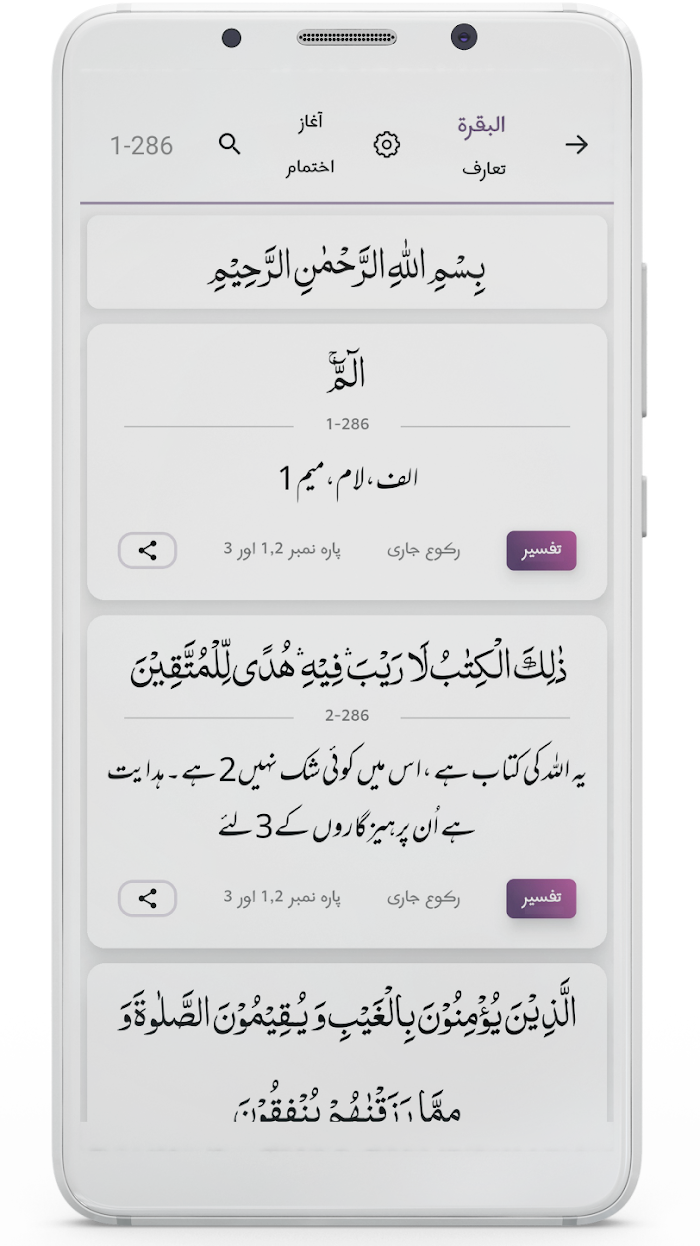 البقرة
تعارف
آغاز
اختمام
1-286
بِسْمِ اللهِ الرَّحْمٰنِ الرَّحِيْمِ
الٓمّٓۚ
1-286
الف،لام،میم1
تفسیر
رکوع جاری
پارہ نمبر 1,2 اور 3
ذٰلِكَ الْكِتٰبُ لَا رَيْبَ ۛ فِيْهِ ۛ هُدًى لِّلْمُتَّقِيْنَ
2-286
یہ اللہ کی کتاب ہے ،اس میں کوئی شک نہیں2 ہے ۔ ہدایت
ہے اُن پرہیزگاروں کے3 لئے
تفسیر
رکوع جاری
پارہ نمبر 1,2 اور 3
الَّذِيْنَ يُؤْمِنُوْنَ بِالْغَيْبِ وَ يُقِيْمُوْنَ الصَّلٰوةَ وَ
مِمَّا رَزَقْنٰهُمْ يُنْفِقُوْنَ